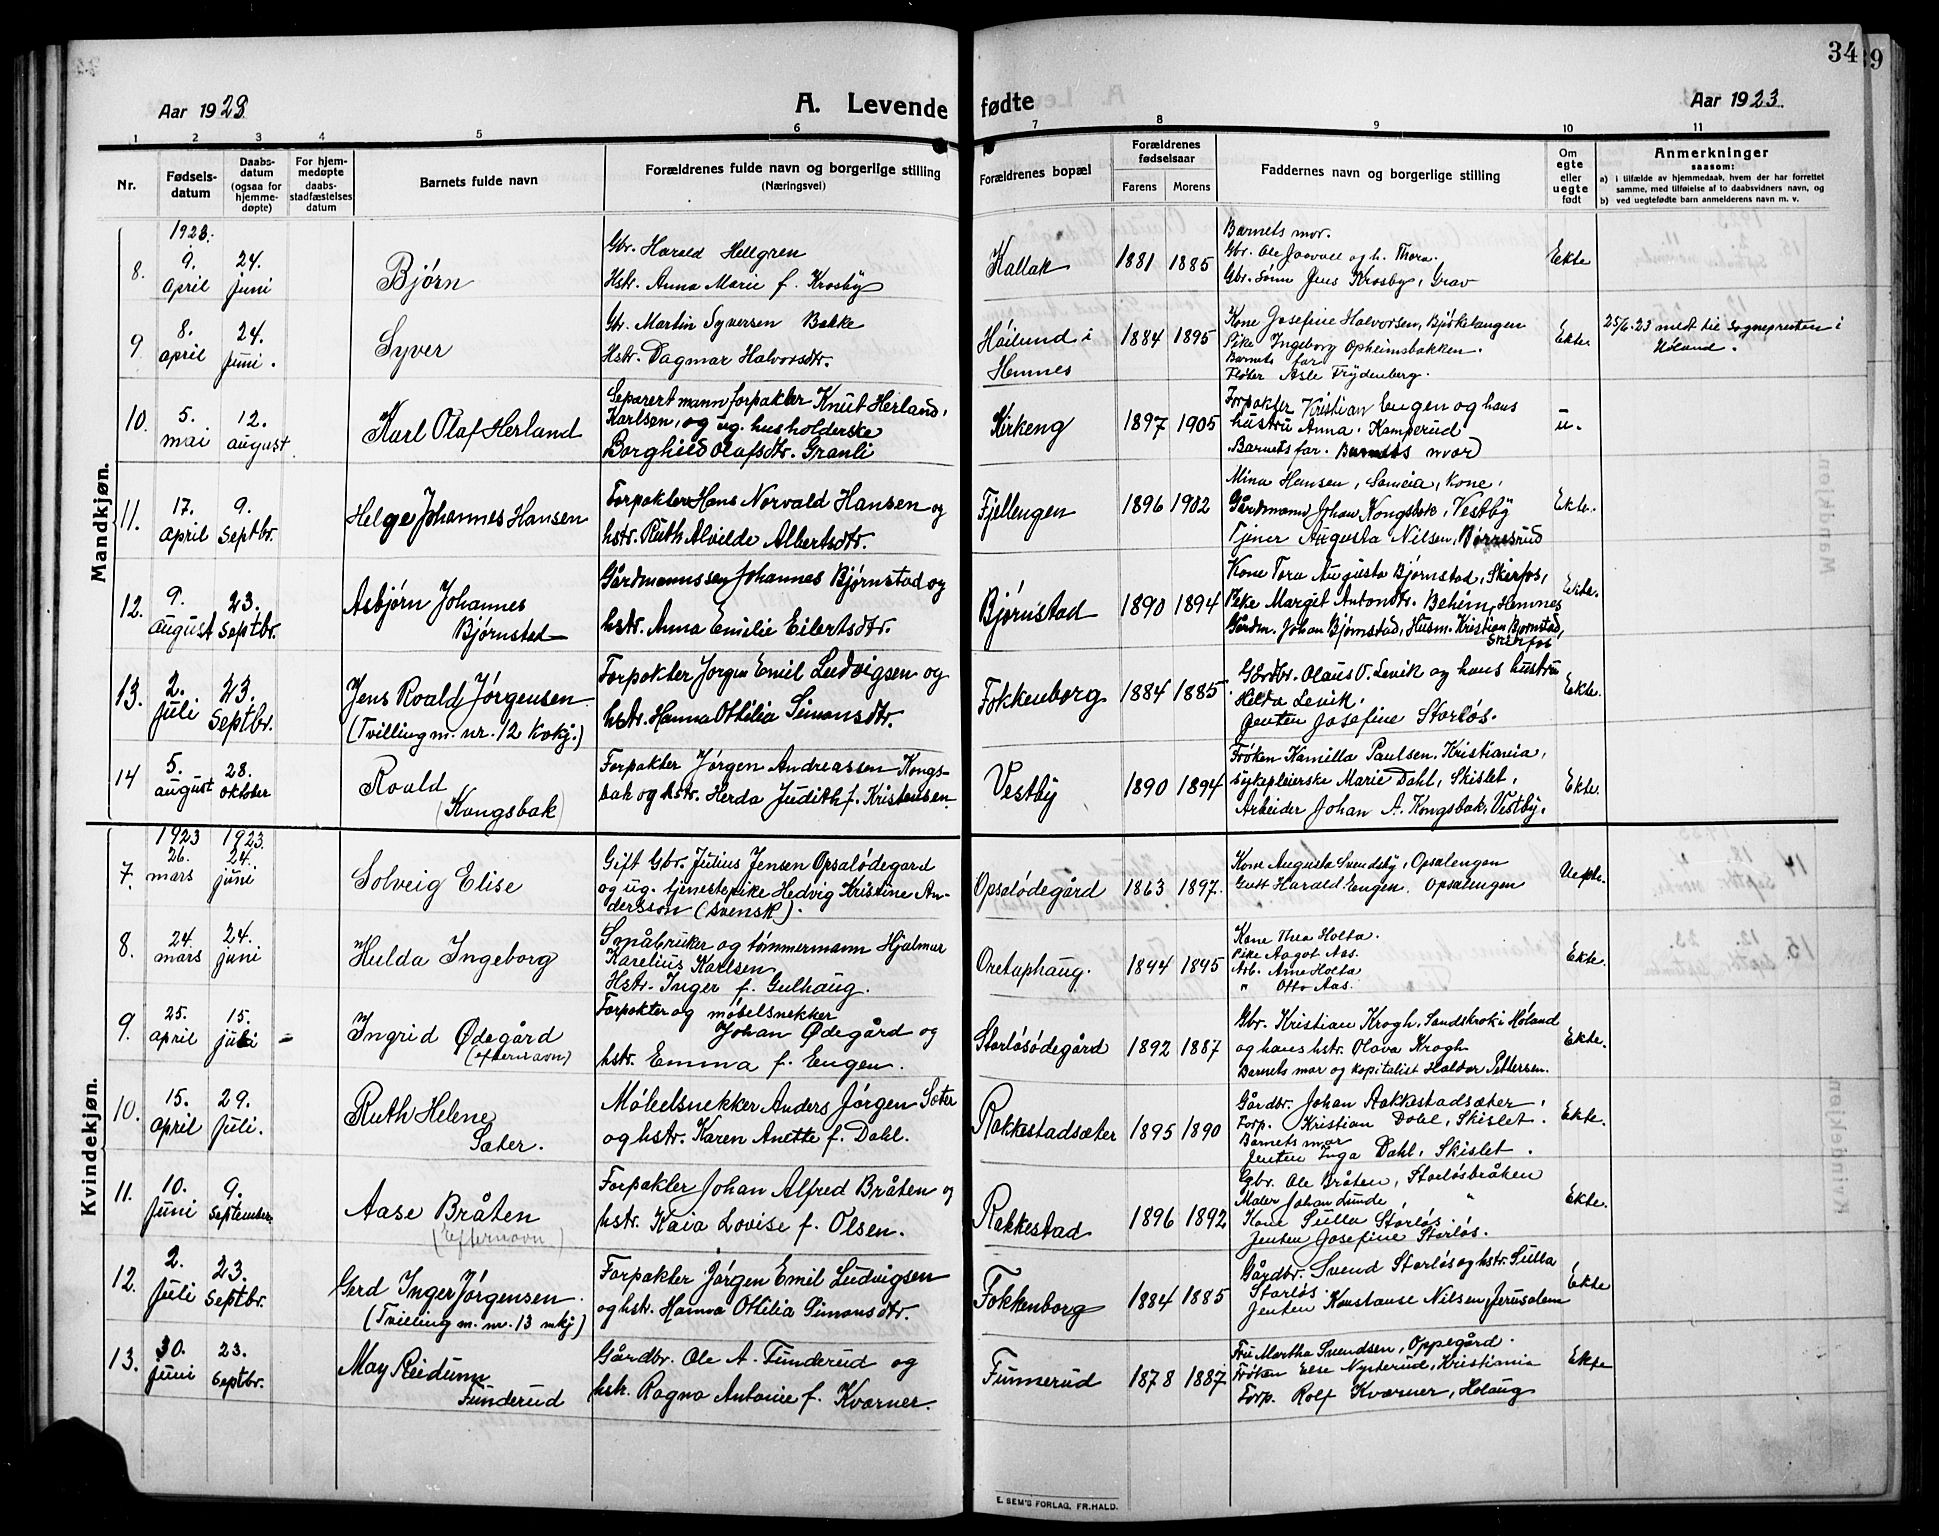 34
29
Aar 1923.
A. Levende
fødte
Aar 1923.
1 2 3 4 5 6 7 8 9 10 11
Nr.
Fødsels-
datum
Daabs-
datum
(ogsaa for
hjemme-
døpte)
For hjem-
medøpte
daabs-
stadfæstelses
datum
Barnets fulde navn
Forældrenes fulde navn og borgerlige stilling
(Næringsvei)
Forældrenes bopæl
Forældrenes
fødselsaar
Farens Morens
Faddernes navn og borgerlige stilling
Om
egte
eller
uegte
født
Anmerkninger
saasom:
a) i tilfælde av hjemmedaab, hvem der har forrettet
samme, med tilføielse af to daabsvidners navn, og
b) ved uegtefødte barn anmelderens navn m. v.
Mandkjøn.
1923.
8. 9. april 24. juni
Bjørn
Gbr. Harald Hellgren
Hstr. Anna Marie f. Krosby
Kallak 1881 1885
Barnets mor.
Gbr. Ole Joavall og h. Thora.
Gbr. sønn Jens Krosby, Grav
Ekte
9 8. april 24. juni.
Syver
Gbr. Martin Syversen Bakke
Hstr. Dagmar Halvorsdtr.
Høilund i
Hemnes
1884 1895
Kone Josefine Halvorsen, Bjørkelangen
Pike Ingeborg Opheimsbakken.
Barnets far
Fløter Asle Frydenberg.
Ekte
25/6.23 medt til sognepresten i
Høland.
10. 5. mai 12. august
Karl Olaf Herland
Separert mann forpakter Knut Herland,
Karlsen, og ug. husholderske
Borghild Olafsdtr. Granli
Kirkeng 1897 1905
Forpakter Kristian Engen og hans
hustru Anna, Kamperud
Barnets far. Barnets mor
u.
11. 17. april 9. Septbr.
Helge Johannes Hansen
Forpakter Hans Norvald Hansen og
hstr. Ruth Alvilde Albertsdtr.
Fjellengen 1896 1902
Mina Hansen, Sameia, Kone,
Gårdmann Johan Kongsbak, Vestby
Tjener Augusta Nilsen, Børresrud
Ekte.
12. 9. august 23. Septbr.
Asbjørn Johannes
Bjørnstad
Gårdmannssøn Johannes Bjørnstad og
hstr. Anna Emilie Eilertsdtr.
Bjørnstad 1890 1894
Kone Tora Augusta Bjørnstad, Skerfos,
Pike Margit Antondtr. Behim, Hemnes
Gårdm. Johan Bjørnstad, Husm. Kristian Bjørnstad,
Skerfos
Ekte.
13. 2. Juli 23. Septbr.
Jens Roald Jørgensen
(Tvilling m. nr. 12 kvkj.)
Forpakter Jørgen Emil Ludvigsen og
hstr. Hanna Othilia Simonsdtr.
Fokkenborg 1884 1885
Gårdbr. Olaus O. Levik og hans hustru
Helda Levik.
Jenten Josefine Storløs.
Ekte.
14 5. august 28. oktober
Roald
(Kongsbak)
Forpakter Jørgen Andreassen Kongs-
bak og hstr. Herda Judith f. Kristensen
Vestby 1890 1894
Frøken Kamilla Paulsen, Kristiania,
sykepleierske Marie Dahl, Skislet,
Arbeider Johan A. Kongsbak, Vestby.
Ekte.
Kvindekjøn.
1923 1923.
7. 26. mars 24. juni
Solveig Elise
Gift Gbr. Julius Jensen Opsalødegard
og ug. tjenestepike Hedvig Kristine An-
dersson (svensk).
Opsalødegård 1863 1897.
Kone Augusta Svendsby, Opsalengen
Gutt Harald Engen, Opsalengen
Uekte.
8. 24. mars 24. juni
Hulda Ingeborg
Småbruker og tømmermann Hjalmar
Karelius Karlsen
Hstr. Inger f. Gulhaug.
Oretuphaug. 1894 1895
Kone Thea Holta.
Pike Aagot Aas.
Arb. Arne Holta
" Otto Aas.
Ekte.
9. 25. april 15. juli
Ingrid Ødegård
(efternavn)
Forpakter og møbelsnekker
Johan Ødegård og
hstr. Emma f. Engen.
Storløsødegård 1892 1887
Gbr. Kristian Krogh, Sandskrok i Høland
og hans hstr. Olava Krogh
Barnets mor og kapitalist Haldor Pettersen.
Ekte.
10. 15. april 29. juli.
Ruth Helene
Sæter.
Møbelsnekker Anders Jørgen Sæter
og hstr. Karen Anette f. Dahl.
Rakkestadsæter 1895 1890
Gårdbr. Johan Rakkestadsæter,
Forp. Kristian Dahl, Skislet.
Barnets mor
Jenten Inga Dahl, Skislet.
Ekte.
11. 10. Juni 9. September
Aase Bråten
(Efternavn)
Forpakter Johan Alfred Bråten og
hstr. Kaia Lovise f. Olsen.
Rakkestad 1896 1892
Gbr. Ole Bråten, Storløsbråken
Maler Johan Lunde, "
Kone Sulla Storløs
Jenten Josefine Storløs.
Ekte.
12. 2. Juli 23. Septbr.
Gerd Inger Jørgensen.
(Tvilling m. nr. 13 mkj)
Forpakter Jørgen Emil Ludvigsen
og hstr. Hanna Othilia Simonsdtr.
Fokkenborg 1884 1885
Gårdbr. Svend Storløs og hstr. Sulla
Storløs.
Jenten Konstanse Nilsen, Jerusalem
Ekte
13. 30. juni 23. septbr.
May Reidunn
Funderud
Gårdbr. Ole A. Funderud og
hstr. Ragna Antonie f. Kværner.
Funnerud 1878 1887
Fru Martha Svendsen, Oppegård.
Frøken Else Nysterud, Kristiania
Forp. Rolf Kværner, Holaug
Ekte
E. SEM'S FORLAG, FR.HALD.